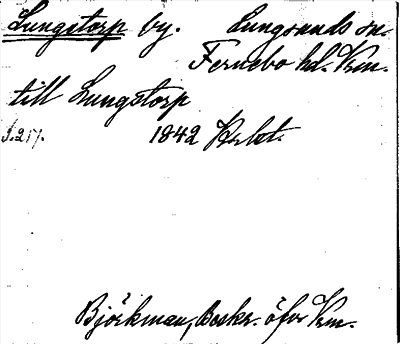 Lungstorp by. Lungsunds sn.
Fernebo hd. Vrm.
till Lungstorp
S. 217. 1842 Krbt.
Björkman, Beskr. öfver Vrm.